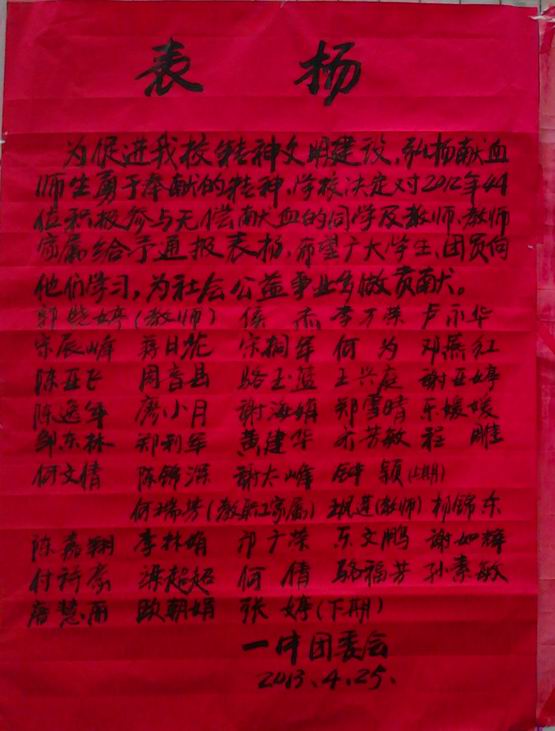 表 扬
为促进我校精神文明建设，弘扬献血
师生勇于奉献的精神，学校决定对2012年44
位积极参与无偿献血的同学及教师、教师
家属给予通报表扬，希望广大学生、团员向
他们学习，为社会公益事业多做贡献。
郭晓婷（教师） 侯 杰 李万荣 卢丽华
宋辰峰 蒋日花 何 为 邓燕红
陈亚飞 周喜县 骆玉蓝 王兴庭 谢亚婷
陈逸年 廖小月 谢海娟 郑雪晴 乐媛媛
邹东林 郑利军 黄建华 方芳敏 程 雕
何文情 陈锦深 谢太峰 钟 颖（上期）
何瑞芳（教职工家属） （教师） 杨锦乐
陈嘉翔 李林娟 邓广荣 东文鹏 谢如辉
付祈豪 梁超超 何 倩 骆福芳 孙素敏
唐慧丽 欧朝娟 张 婷（下期）
一中团委会
2013.4.25.